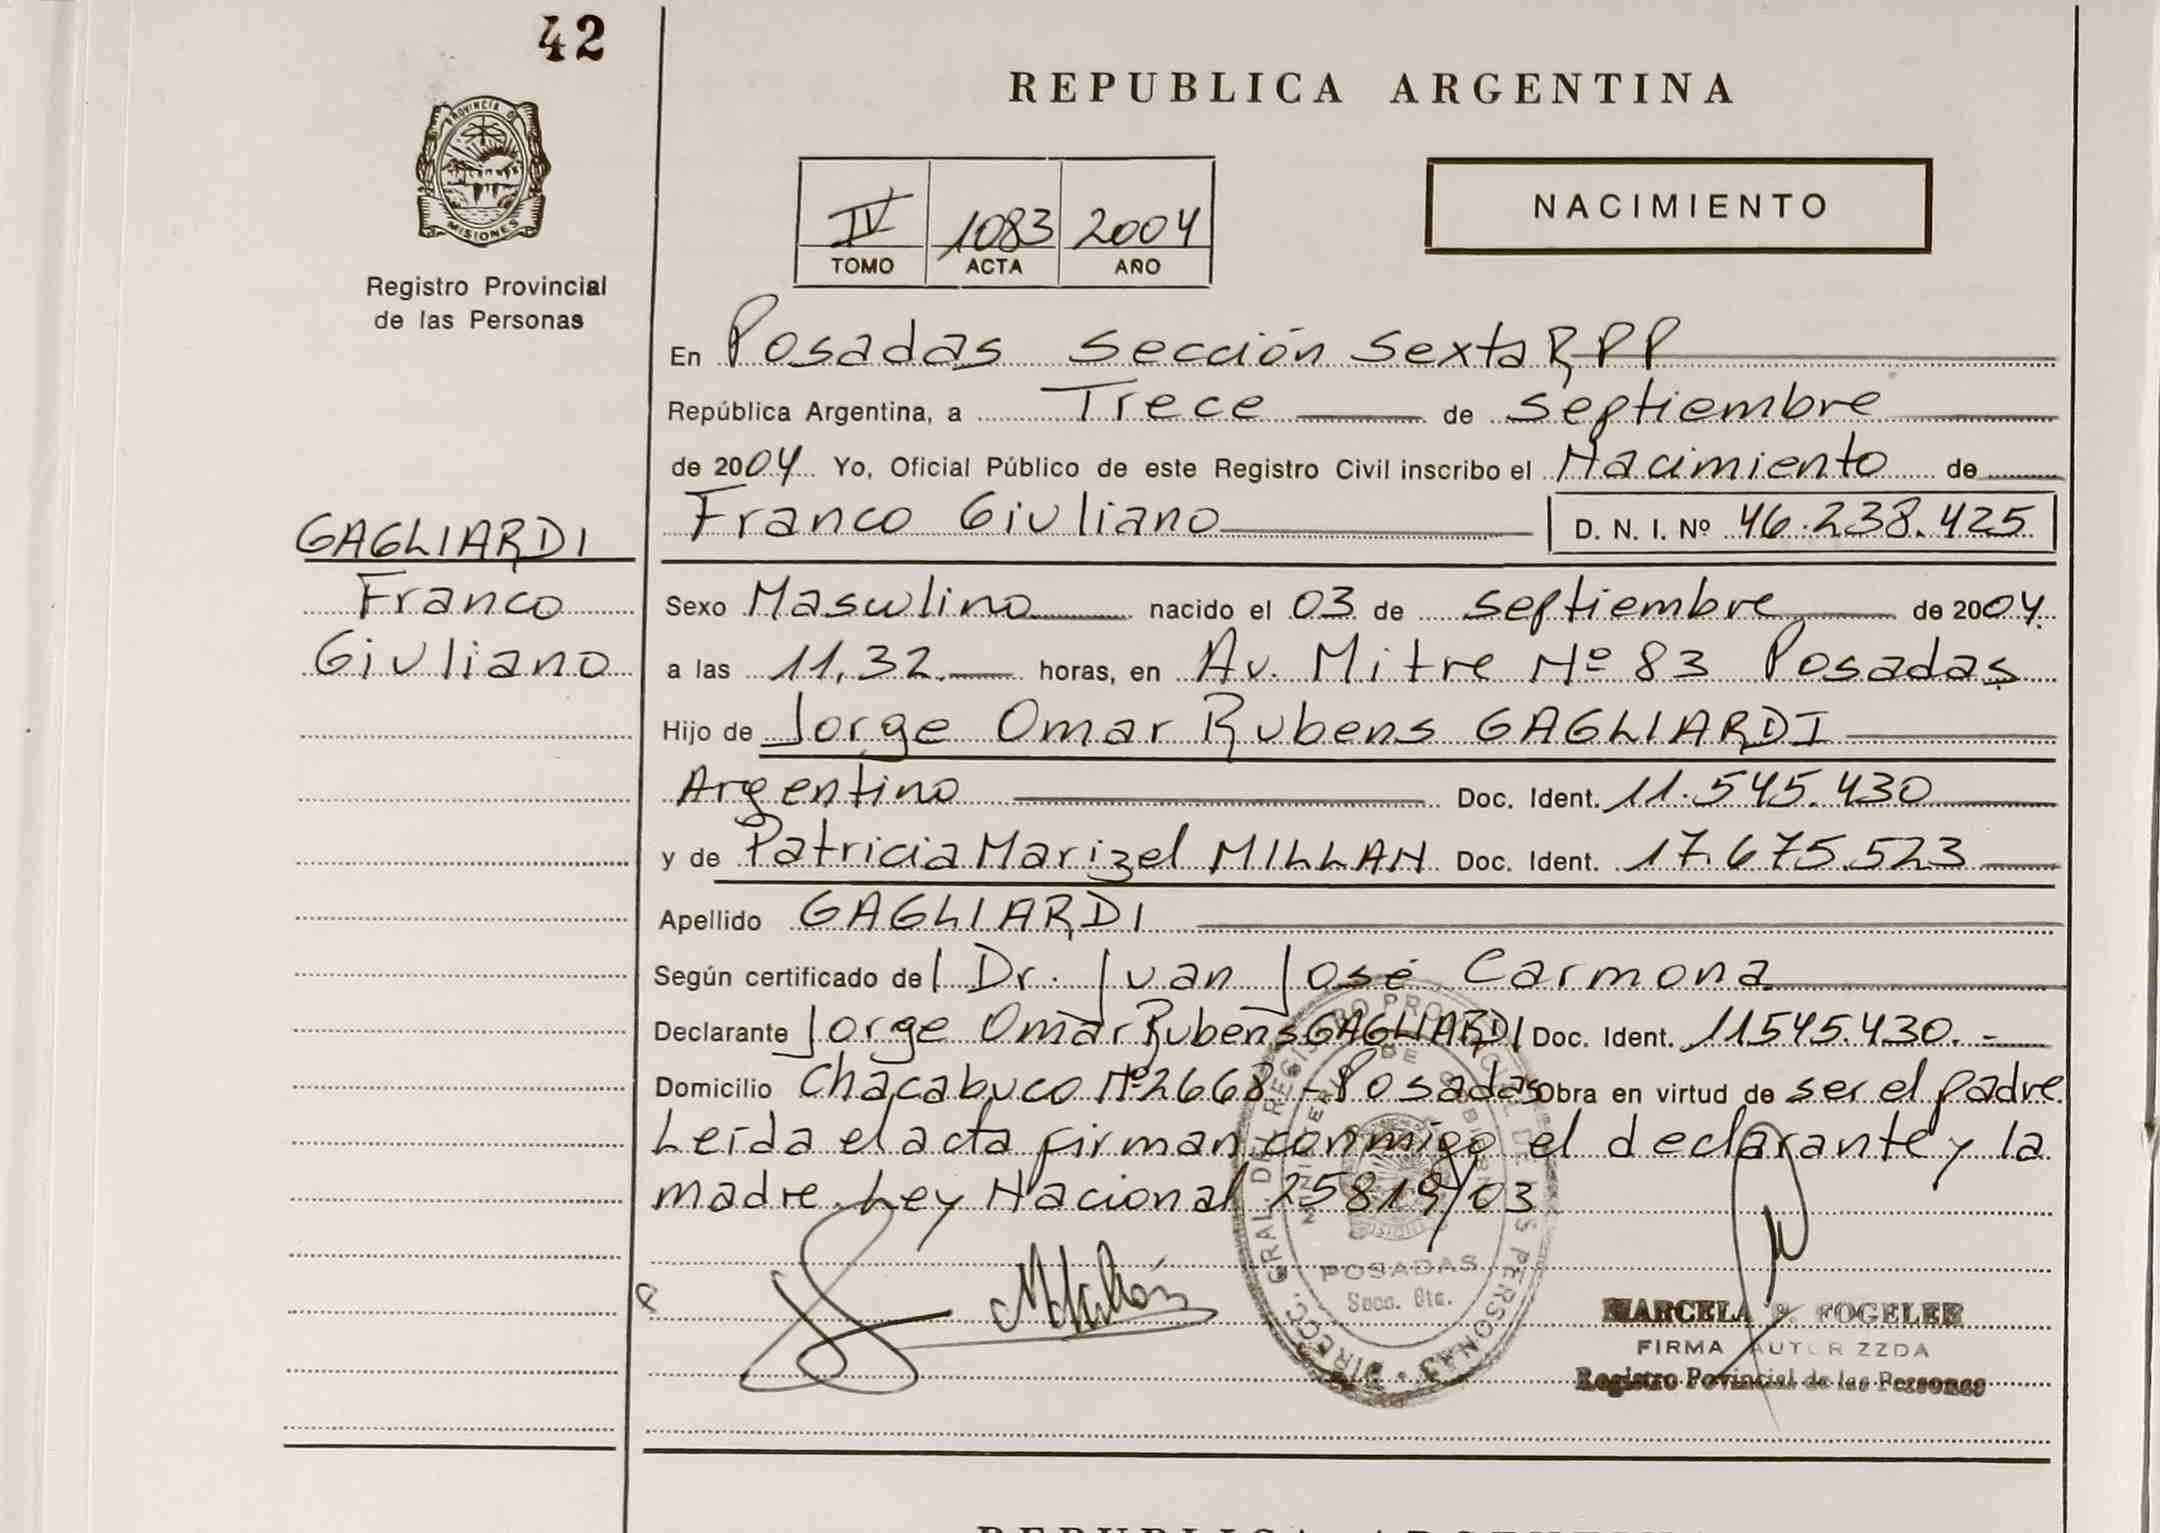 42
REPUBLICA ARGENTINA
PROVINCIA D
MISIONES
Registro Provincial
de las Personas
IV 1083 2004
TOMO ACTA AÑO
NACIMIENTO
En Posadas Sección Sexta RPP
República Argentina, a Trece de septiembre
de 2004 Yo, Oficial Público de este Registro Civil inscribo el Nacimiento de
Franco Giuliano D. N. I. Nº 46.238.425
GAGLIARDI
Franco
Giuliano
Sexo Masculino nacido el 03 de septiembre de 2004
a las 11,32 horas, en Av. Mitre Nº 83 Posadas
Hijo de Jorge Omar Rubens GAGLIARDI
Argentino Doc. Ident. 11.545.430
y de Patricia Marizel MILLAN Doc. Ident. 17.675.523
Apellido GAGLIARDI
Según certificado del Dr. Juan José Carmona
Declarante Jorge Omar Rubens GAGLIARDI Doc. Ident. 11545.430.-
Domicilio Chacabuco Nº 2668 - Posadas Obra en virtud de ser el padre.
Leída el acta firman conmigo el declarante y la
madre. Ley Nacional 25819/03
Millán
DIRECC. GRAL. DEL REGISTRO PROVINCIAL DE LAS PERSONAS
MINISTERIO DE GOBIERNO
POSADAS
Secc. 6ta.
MARCELA FOGELER
FIRMA AUTORIZZDA
Registro Povincial de las Personas